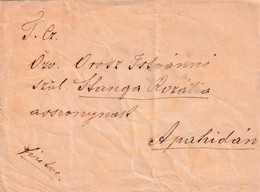 T. Cz.
Özv. Orosz Istvánné
szül. Stanga Rozália
asszonynak
Apahidán